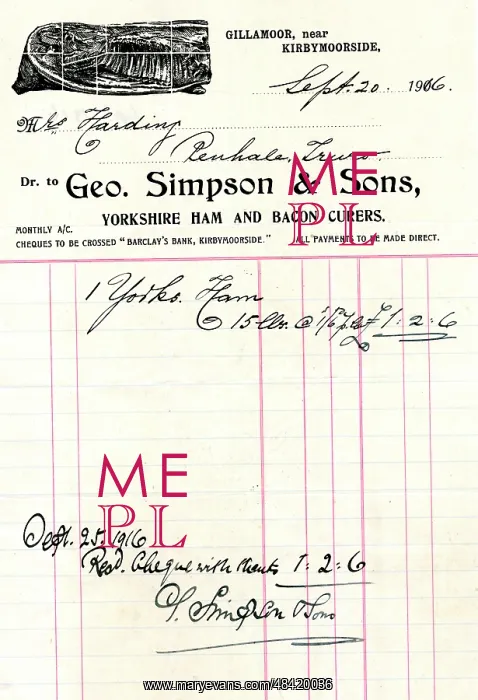 GILLAMOOR, near
KIRBYMOORSIDE,
Sept. 20. 1916.
Mrs Harding
Penhale, Truro.
Dr. to Geo. Simpson & Sons,
YORKSHIRE HAM AND BACON CURERS.
MONTHLY A/C.
CHEQUES TO BE CROSSED "BARCLAY'S BANK, KIRBYMOORSIDE." ALL PAYMENTS TO BE MADE DIRECT.
ME
PL
1 Yorks. Ham
15 lbs. @ 1/6 £ 1: 2: 6
ME
PL
Sept. 25. 1916
Recd. Cheque with thanks 1: 2: 6
G. Simpson & Sons
www.maryevans.com/48420036